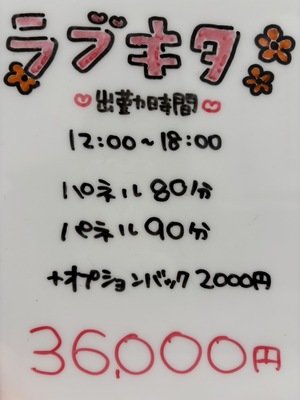 ラブキタ
出勤時間
12:00~18:00
パネル 80分
パネル 90分
+オプションバック 2000円
36,000円